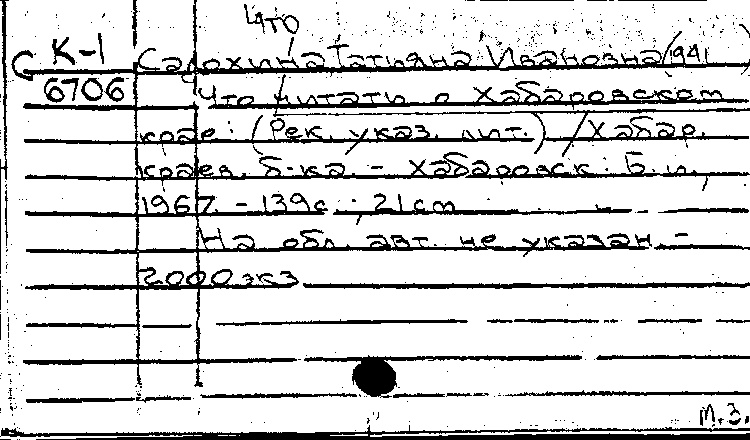 Что
К-1 Садохина Татьяна Ивановна (1941
6706 Что читать о Хабаровском
крае: (Рек. указ. лит.) / Хабар.
краев. б-ка. - Хабаровск: Б. и.,
1967. - 139с.; 21cm
На обл. авт. не указан. -
2000 экз
М.З.